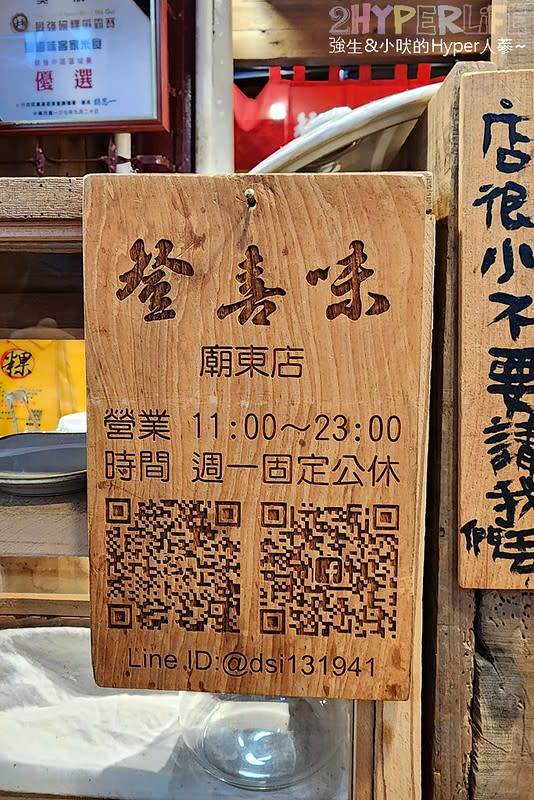 2HYPERLiFE
強生&小吠的Hyper人蔘~
優選
粿
登喜味
廟東店
營業 11:00~23:00
時間 週一固定公休
Line ID:@dsi131941
店很小不要請我們